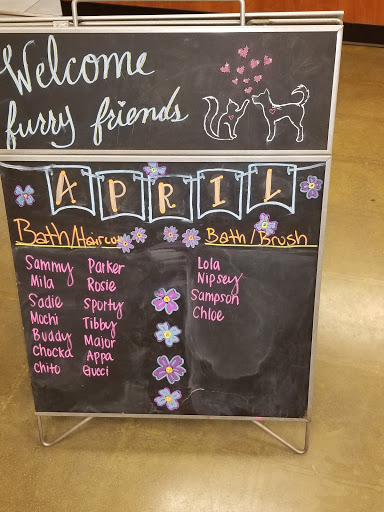 Welcome
furry friends
APRIL
Bath/Haircu
Bath/Brush
Sammy Parker
Mila Rosie
Sadie Sporty
Mochi Tibby
Buddy Major
Chocka Appa
Chito Gucci
Lola
Nipsey
Sampson
Chloe